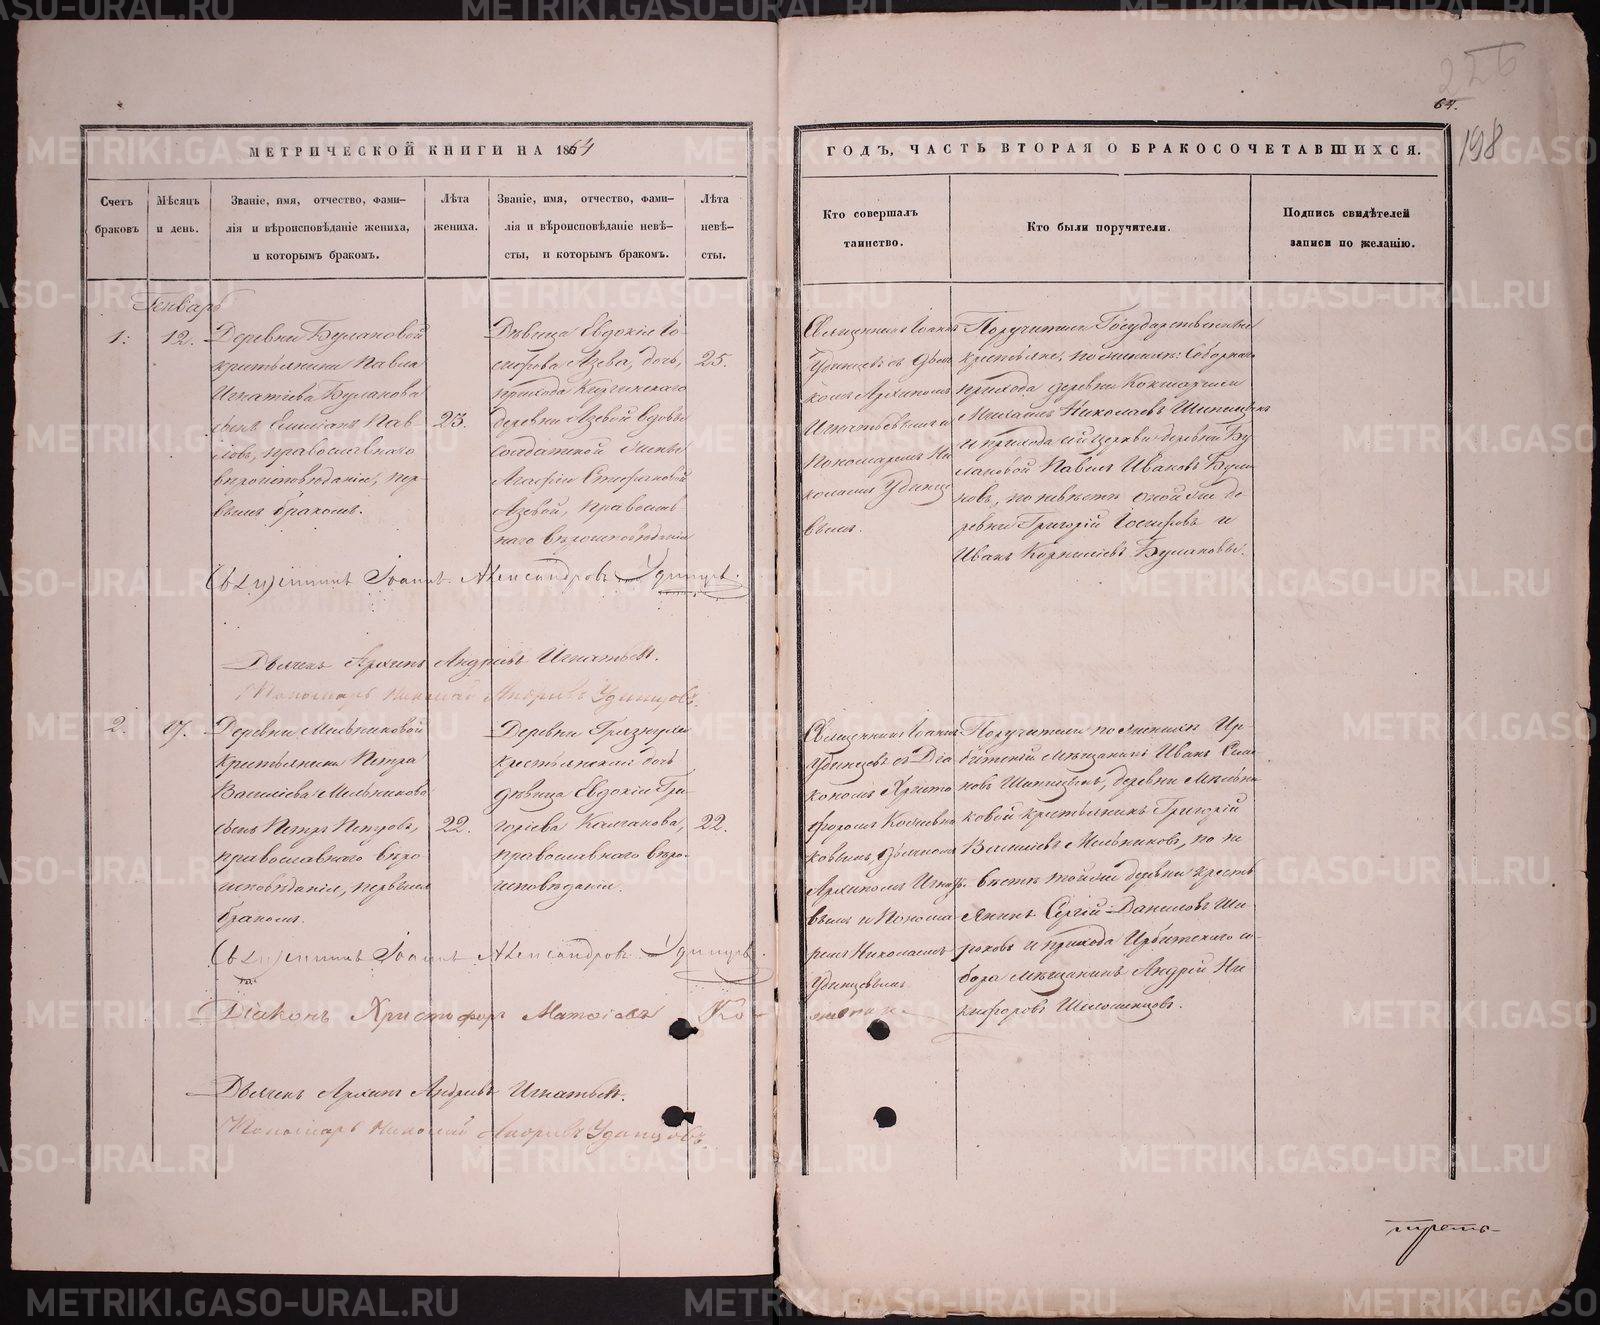 64.
198
МЕТРИЧЕСКОЙ КНИГИ НА 1864
ГОДЪ, ЧАСТЬ ВТОРАЯ О БРАКОСОЧЕТАВШИХСЯ.
Счетъ
браковъ
Мѣсяцъ
и день.
Званіе, имя, отчество, фами-
лія и вѣроисповѣданіе жениха,
и которымъ бракомъ.
Лѣта
жениха.
Званіе, имя, отчество, фами-
лія и вѣроисповѣданіе невѣ-
сты, и которымъ бракомъ.
Лѣта
невѣ-
сты.
Кто совершалъ
таинство.
Кто были поручители.
Подпись свидѣтелей
записи по желанію.
Генварь
1.
12.
Деревни Булановой
крестьянина Павла
Игнатіева Буланова
сынъ Емиліанъ Пав-
ловъ, православнаго
вѣроисповѣданія, пер-
вымъ бракомъ.
23.
Дѣвица Евдокія Іо-
сифова Азева, дочь,
прихода Киргинскаго
деревни Азевой вдовы
солдатской жены
Агафіи
Азевой, православ
наго вѣроисповѣданія
25.
Священникъ Іоаннъ
Удинцевъ съ Дьяч
комъ Архипомъ
Игнатьевымъ и
Пономаремъ Ни
колаемъ Удинце
вымъ.
Поручители Государственные
крестьяне, по женихѣ: Соборнаго
прихода деревни Кокшаровой
Михаилъ Николаевъ Шипицынъ
и прихода сей церкви деревни Бу
лановой Павелъ Ивановъ Була
новъ, по невѣстѣ оной же де
ревни Григорій Іосифовъ и
Иванъ Корниліевъ Булановы.
Священникъ Іоаннъ Александровъ Удинцевъ.
Дьячекъ Архипъ Андреевъ Игнатьевъ.
Пономарь Николай Андреевъ Удинцовъ.
2.
17.
Деревни Мельниковой
крестьянина Петра
Василіева Мельникова
сынъ Петръ Петровъ,
православнаго вѣро
исповѣданія, первымъ
бракомъ.
22.
Деревни Грязнухи
крестьянская дочь
дѣвица Евдокія Гри-
горіева Калганова,
православнаго вѣро-
исповѣданія.
22.
Священникъ Іоаннъ
Удинцевъ съ Діа
кономъ Христо
форомъ
ковымъ, Дьячкомъ
Архипомъ Игнать
вымъ и Понома
ремъ Николаемъ
Удинцевымъ
Поручители по женихѣ Ир-
битскій мѣщанинъ Иванъ
новъ Шипицынъ, деревни Мельни
ковой крестьянинъ Григорій
Василіевъ Мельниковъ, по не
вѣстѣ той же деревни кресть
янинъ Сергій Даниловъ Ши-
роковъ и прихода Ирбитскаго со-
бора мѣщанинъ Андрей Ни
кифоровъ Шеломенцовъ.
Священникъ Іоаннъ Александровъ Удинцевъ.
Діаконъ Христофоръ Матѳіевъ Ко-
Дьячекъ Архипъ Андреевъ Игнатьевъ.
Пономарь Николай Андреевъ Удинцовъ.
METRIKI.GASO-URAL.RU